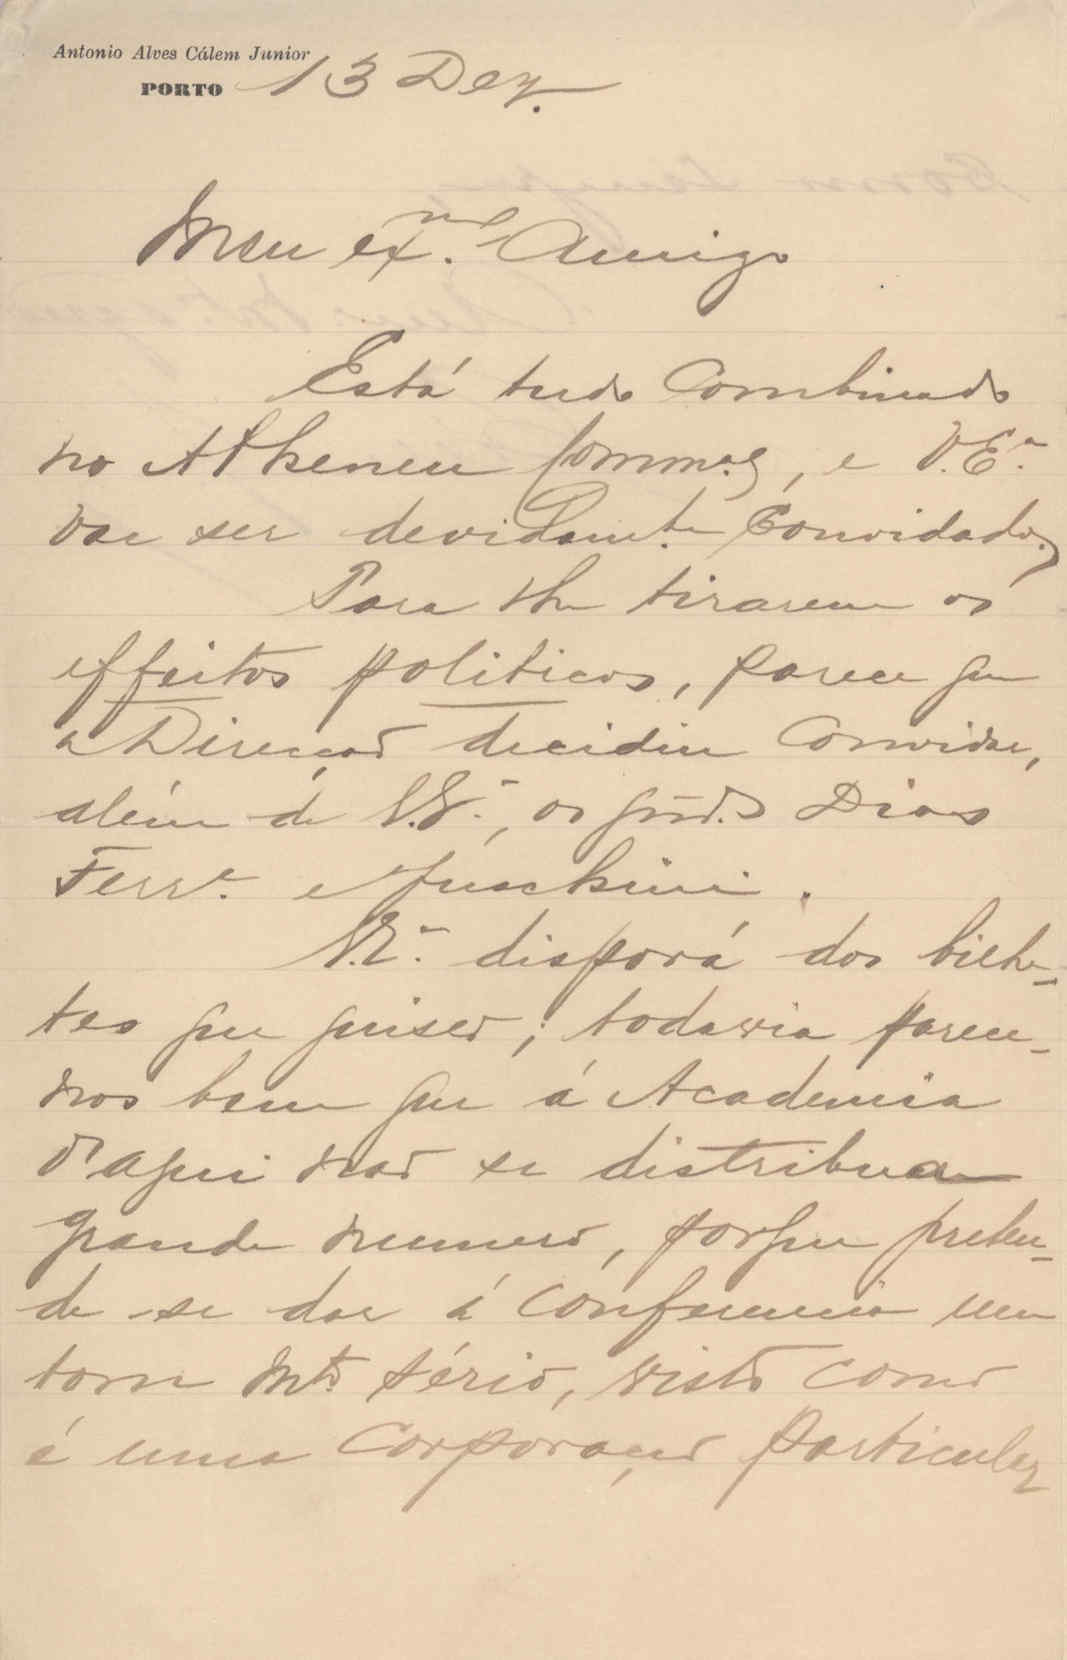 Antonio Alves Cálem Junior
PORTO 13 Dez.
Meu ex.mo Amigo
Está tudo Combinado
no Atheneu Comm.al, e V.Ex.a
vae ser devidam.te Convidado.
Para lhe tirarem os
effeitos politicos, parece que
a Direcção decidiu Convidar,
além de V.Ex.a, os Dias
Ferr.a e Fuschini.
V.Ex.a disporá dos bilhe-
tes que quiser; todavia parece-
nos bem que á Academia
d'aqui não se distribua
grande numero, porque preten-
de se dar á Conferencia um
tom m.to sério, visto como
é uma Corporação particular